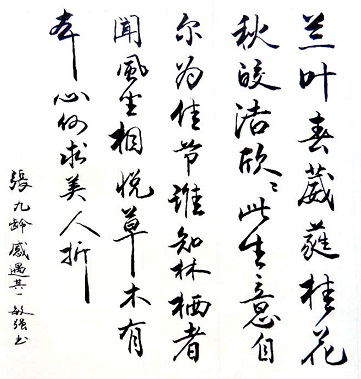 兰叶春葳蕤桂花
秋皎洁欣ζ此生意自
尔为佳节谁知林栖者
闻风坐相悦草木有
本心何求美人折
張九龄感遇其一敏强书